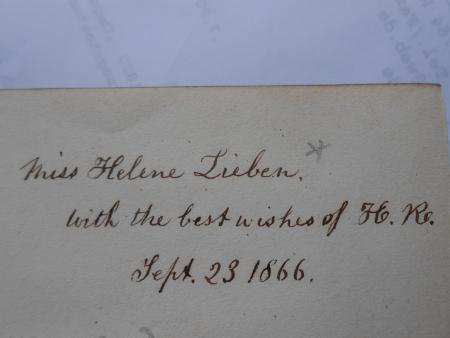 Miss Helene Lieben.
with the best wishes of H. K.
Sept. 23 1866.